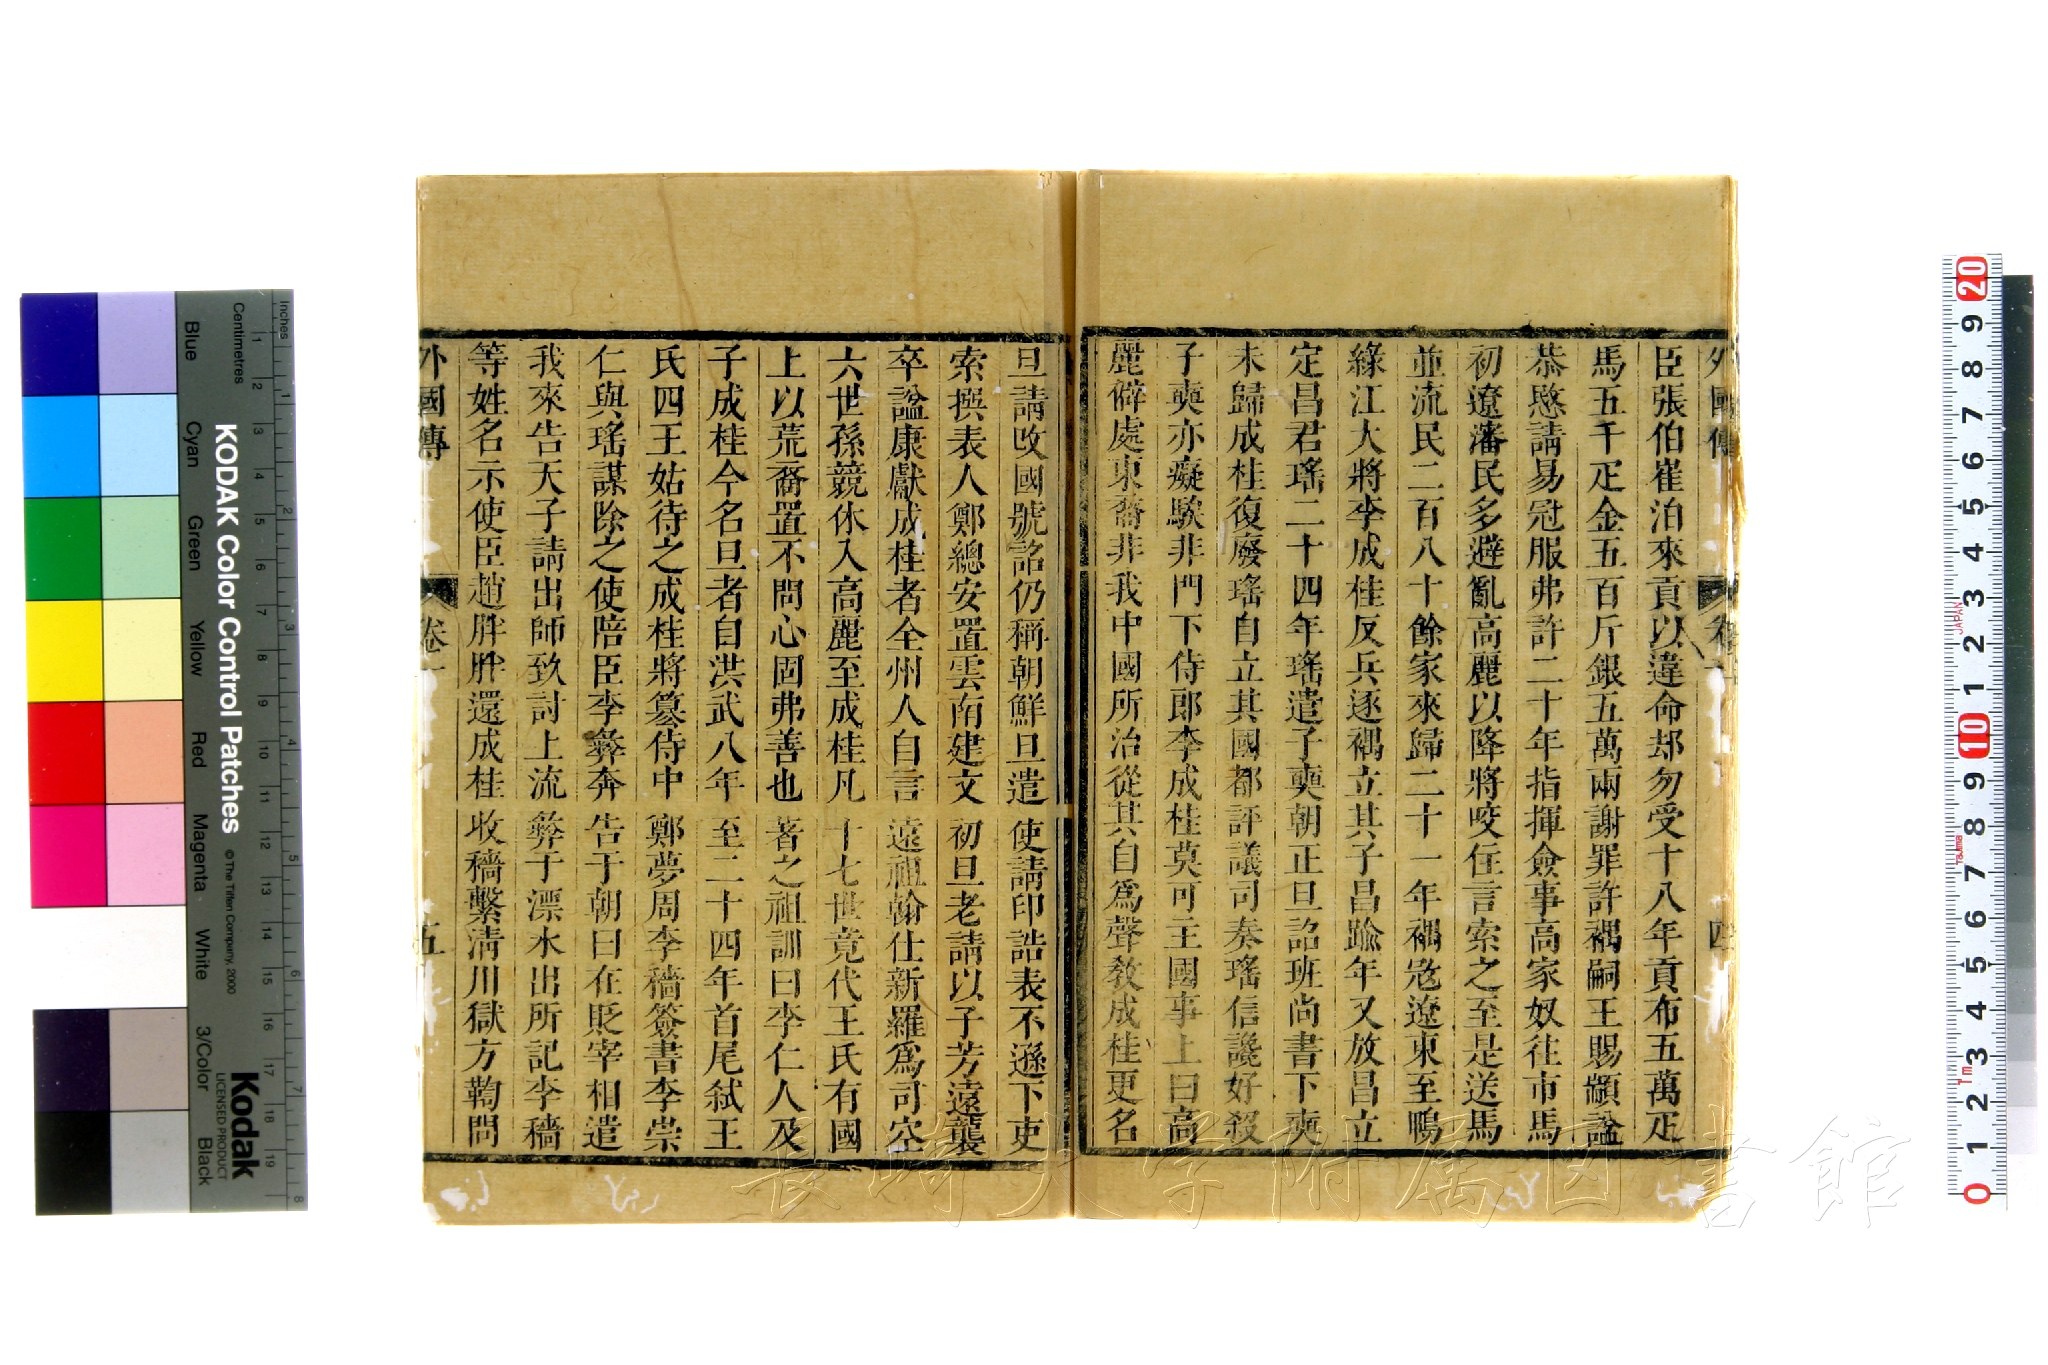 外國傳 卷一 四
臣張伯崔泊來貢以違命却勿受十八年貢布五萬疋
馬五千疋金五百斤銀五萬兩謝罪許禑嗣王賜顓謚
恭愍請易冠服弗許二十年指揮僉事高家奴往市馬
初遼瀋民多避亂高麗以降將咬住言索之至是送馬
並流民二百八十餘家來歸二十一年禑寇遼東至鴨
綠江大將李成桂反兵逐禑立其子昌踰年又放昌立
定昌君瑤二十四年瑤遣子奭朝正旦詔班尚書下奭
未歸成桂復廢瑤自立其國都評議司奏瑤信讒好殺
子奭亦癡騃非門下侍郎李成桂莫可主國事上曰高
麗僻處東裔非我中國所治從其自爲聲教成桂更名
旦請改國號詔仍稱朝鮮旦遣使請印誥表不遜下吏
索撰表人鄭總安置雲南建文初旦老請以子芳遠襲
卒謚康獻成桂者全州人自言遠祖翰仕新羅爲司空
六世孫兢休入高麗至成桂凡十七世竟代王氏有國
上以荒裔置不問心固弗善也著之祖訓曰李仁人及
子成桂今名旦者自洪武八年至二十四年首尾弑王
氏四王姑待之成桂將簒侍中鄭夢周李穡簽書李崇
仁與瑤謀除之使陪臣李彝奔告于朝曰在貶宰相遣
我來告天子請出師致討上流彝于漂水出所記李穡
等姓名示使臣趙胖胖還成桂收穡繫清川獄方鞫問
外國傳 卷一 五
KODAK Color Control Patches
© The Tiffen Company, 2000
Kodak
LICENSED PRODUCT
Inches
Centimetres
Blue
Cyan
Green
Yellow
Red
Magenta
White
3/Color
Black
長崎大学附属図書館
JAPAN